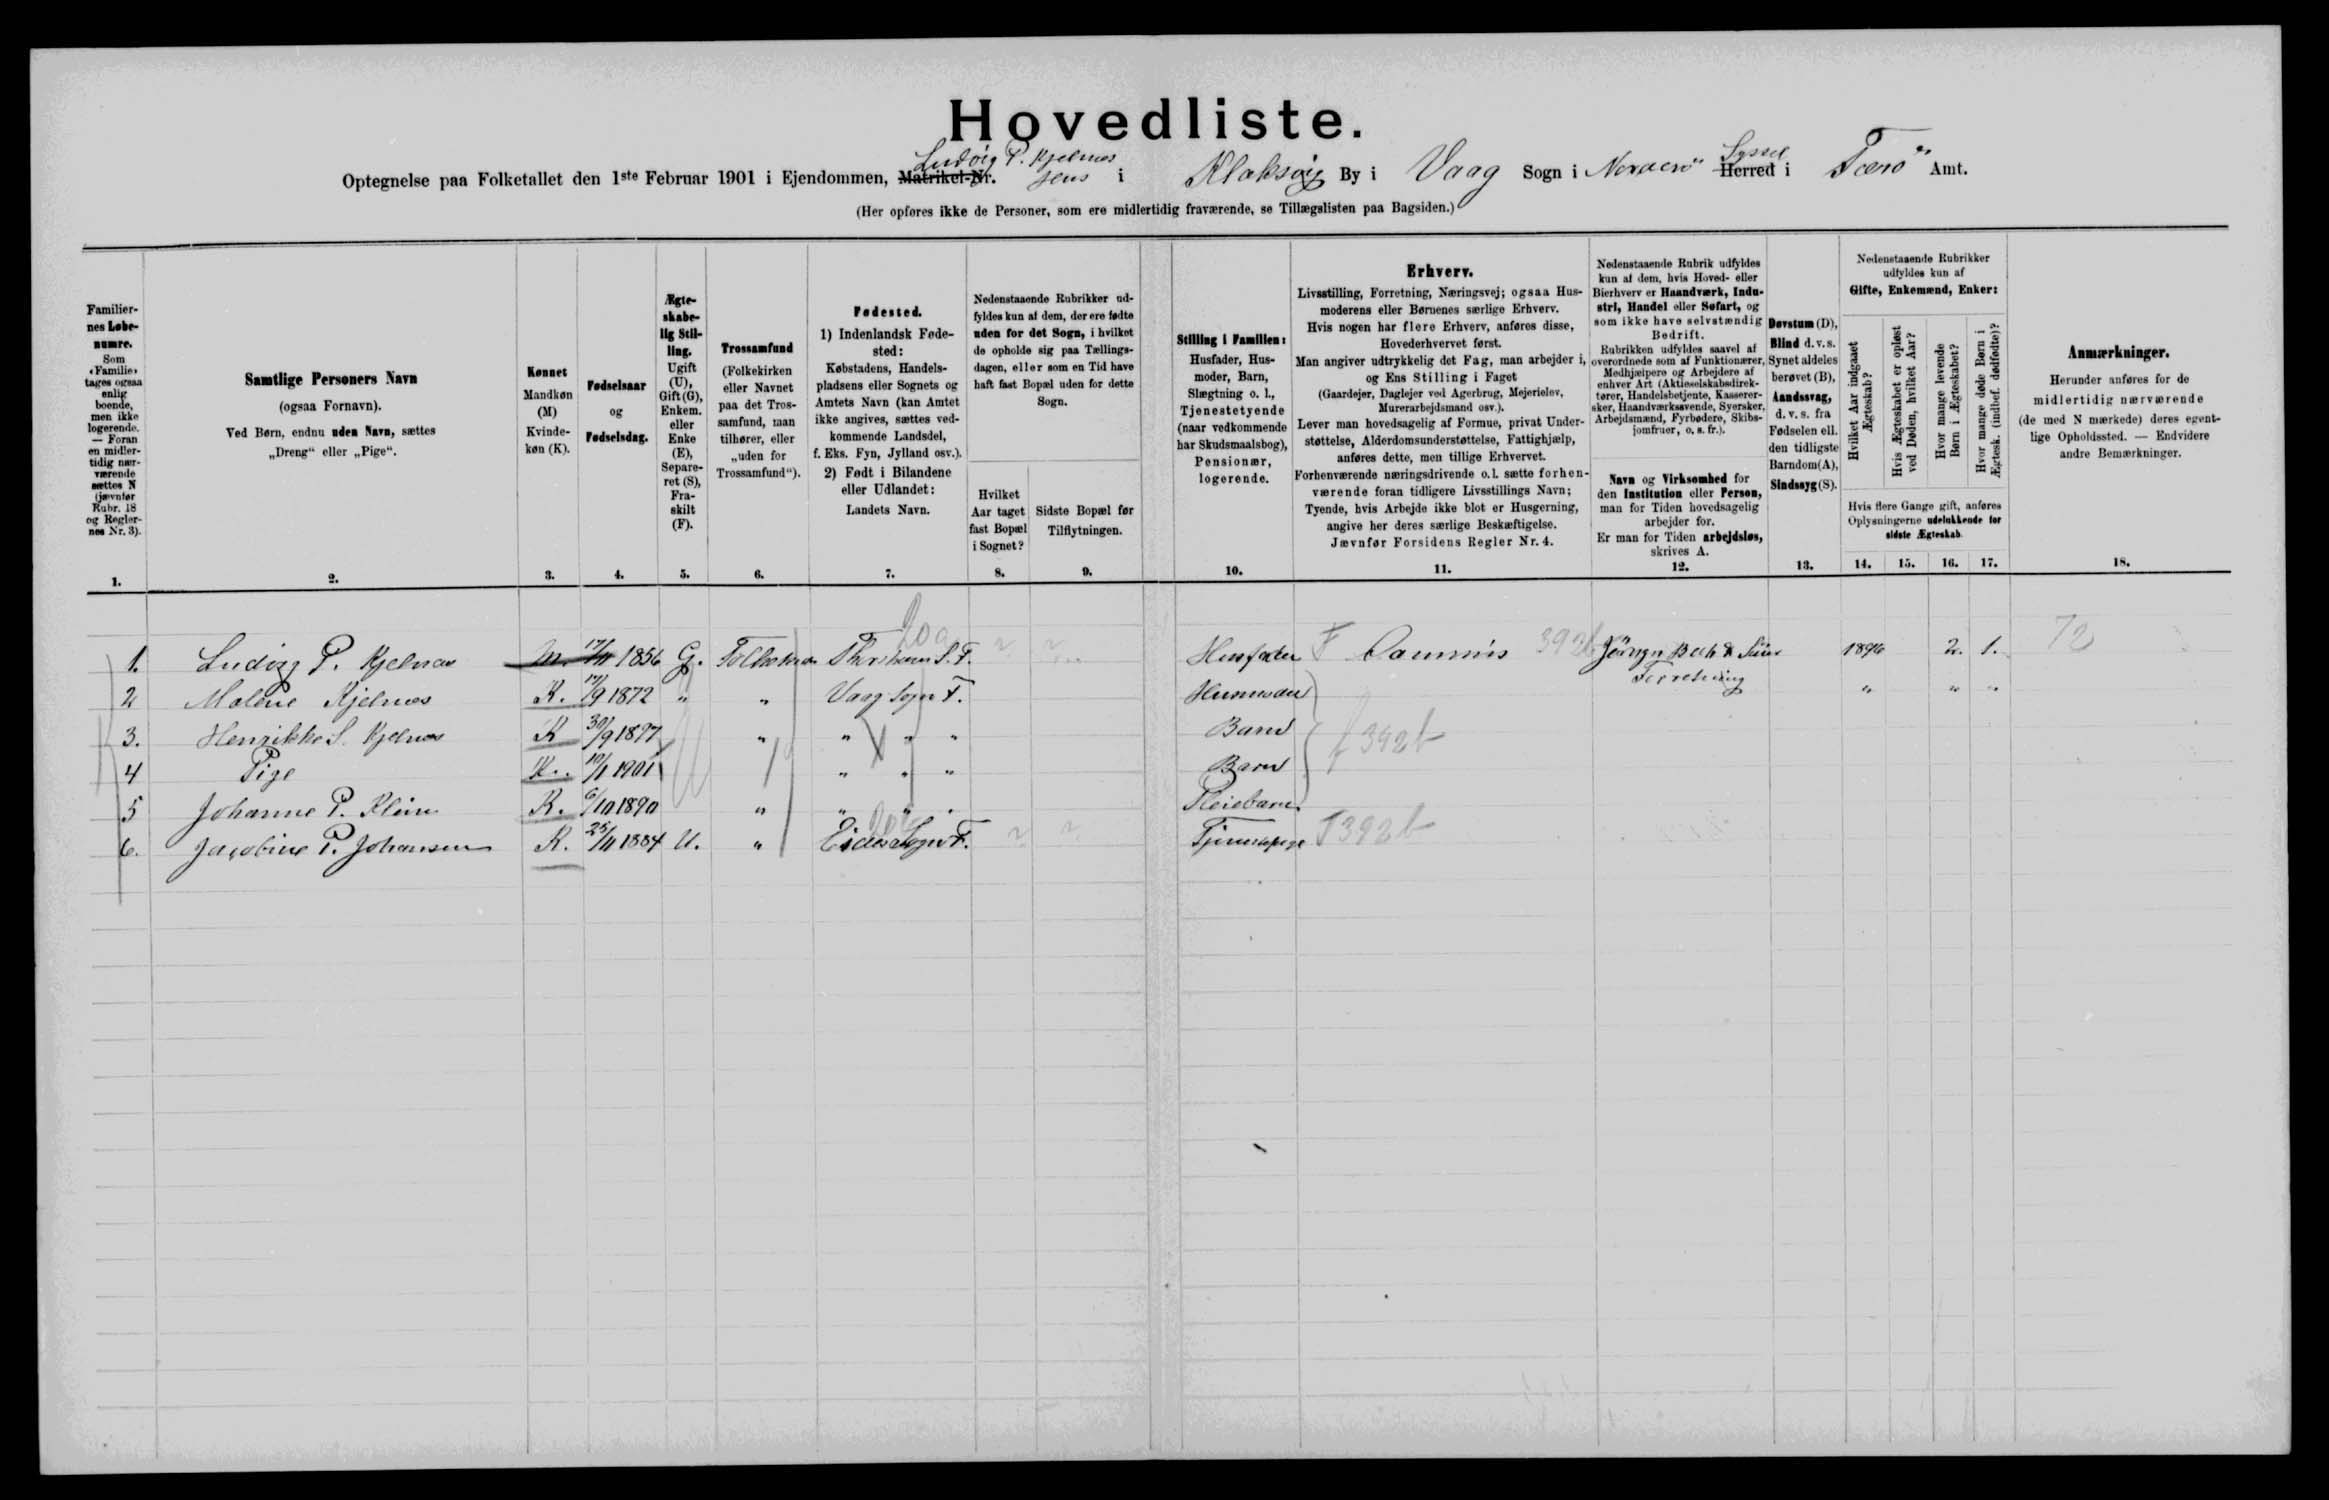 Hovedliste.
Ludvig P. Kjelnes Syssel
Optegnelse paa Folketallet den 1ste Februar 1901 i Ejendommen, Matrikel-Nr. Hus i Klaksvig By i Vaag Sogn i Norderö Herred i Færö Amt.
(Her opføres ikke de Personer, som ere midlertidig fraværende, se Tillægslisten paa Bagsiden.)
Familier-
nes Løbe-
numre.
Som
«Familie»
tages ogsaa
enlig
boende,
men ikke
logerende.
— Foran
en midler-
tidig nær-
værende
sættes N
(jævnfør
Rubr. 18
og Regler-
nes Nr. 3).
1.
Samtlige Personers Navn
(ogsaa Fornavn).
Ved Børn, endnu uden Navn, sættes
„Dreng“ eller „Pige“.
2.
Kønnet
Mandkøn
(M)
Kvinde-
køn (K).
3.
Fødselsaar
og
Fødselsdag.
4.
Ægte-
skabe-
lig Stil-
ling.
Ugift
(U),
Gift (G),
Enkem.
eller
Enke
(E),
Separe-
ret (S),
Fra-
skilt
(F).
5.
Trossamfund
(Folkekirken
eller Navnet
paa det Tros-
samfund, man
tilhører, eller
„uden for
Trossamfund“).
6.
Fødested.
1) Indenlandsk Føde-
sted:
Købstadens, Handels-
pladsens eller Sognets og
Amtets Navn (kan Amtet
ikke angives, sættes ved-
kommende Landsdel,
f. Eks. Fyn, Jylland osv.).
2) Født i Bilandene
eller Udlandet:
Landets Navn.
7.
Nedenstaaende Rubrikker ud-
fyldes kun af dem, der ere fødte
uden for det Sogn, i hvilket
de opholde sig paa Tællings-
dagen, eller som en Tid have
haft fast Bopæl uden for dette
Sogn.
Hvilket
Aar taget
fast Bopæl
i Sognet?
8.
Sidste Bopæl før
Tilflytningen.
9.
Stilling i Familien:
Husfader, Hus-
moder, Barn,
Slægtning o. l.,
Tjenestetyende
(naar vedkommende
har Skudsmaalsbog),
Pensionær,
logerende.
10.
Erhverv.
Livsstilling, Forretning, Næringsvej; ogsaa Hus-
moderens eller Børnenes særlige Erhverv.
Hvis nogen har flere Erhverv, anføres disse,
Hovederhvervet først.
Man angiver udtrykkelig det Fag, man arbejder i,
og Ens Stilling i Faget
(Gaardejer, Daglejer ved Agerbrug, Mejerielev,
Murerarbejdsmand osv.).
Lever man hovedsagelig af Formue, privat Under-
støttelse, Alderdomsunderstøttelse, Fattighjælp,
anføres dette, men tillige Erhvervet.
Forhenværende næringsdrivende o. l. sætte forhen-
værende foran tidligere Livsstillings Navn;
Tyende, hvis Arbejde ikke blot er Husgerning,
angive her deres særlige Beskæftigelse.
Jævnfør Forsidens Regler Nr. 4.
11.
Nedenstaaende Rubrik udfyldes
kun af dem, hvis Hoved- eller
Bierhverv er Haandværk, Indu-
stri, Handel eller Søfart, og
som ikke have selvstændig
Bedrift.
Rubrikken udfyldes saavel af
overordnede som af Funktionærer,
Medhjælpere og Arbejdere af
enhver Art (Aktieselskabsdirek-
tører, Handelsbetjente, Kasserer-
sker, Haandværkssvende, Syersker,
Arbejdsmænd, Fyrbødere, Skibs-
jomfruer, o. s. fr.).
Navn og Virksomhed for
den Institution eller Person,
man for Tiden hovedsagelig
arbejder for.
Er man for Tiden arbejdsløs,
skrives A.
12.
Døvstum (D),
Blind d. v. s.
Synet aldeles
berøvet (B),
Aandssvag,
d. v. s. fra
Fødselen ell.
den tidligste
Barndom (A),
Sindssyg (S).
13.
Nedenstaaende Rubrikker
udfyldes kun af
Gifte, Enkemænd, Enker:
Hvilket Aar indgaaet
Ægteskab?
Hvis Ægteskabet er opløst
ved Døden, hvilket Aar?
Hvor mange levende
Børn i Ægteskabet?
Hvor mange døde Børn i
Ægtesk. (indbef. dødfødte)?
Hvis flere Gange gift, anføres
Oplysningerne udelukkende for
sidste Ægteskab.
14. 15. 16. 17.
Anmærkninger.
Herunder anføres for de
midlertidig nærværende
(de med N mærkede) deres egent-
lige Opholdssted. — Endvidere
andre Bemærkninger.
18.
1. Ludvig P. Kjelnes M. 1856 G. Folkekirken Thorshavn S. F. ? ? Husfader F 392b Bech & Sön 1896 2. 1. 72
Forretning
2 Malene Kjelnes K. 17/9 1872 " " Vaag Sogn F. Husmoder " " "
3. Henrikke S. Kjelnes K 30/9 1897 " " " " Barn f 392b
4 Pige K. 10/1 1901 " " " Barn
5 Johanne P. Klein K. 6/10 1890 " " " " Pleiebarn
6. Jacobine P. Johansen K. 25/11 1884 U. " Eides Sogn F. ? ? Tjenestepige T 392b